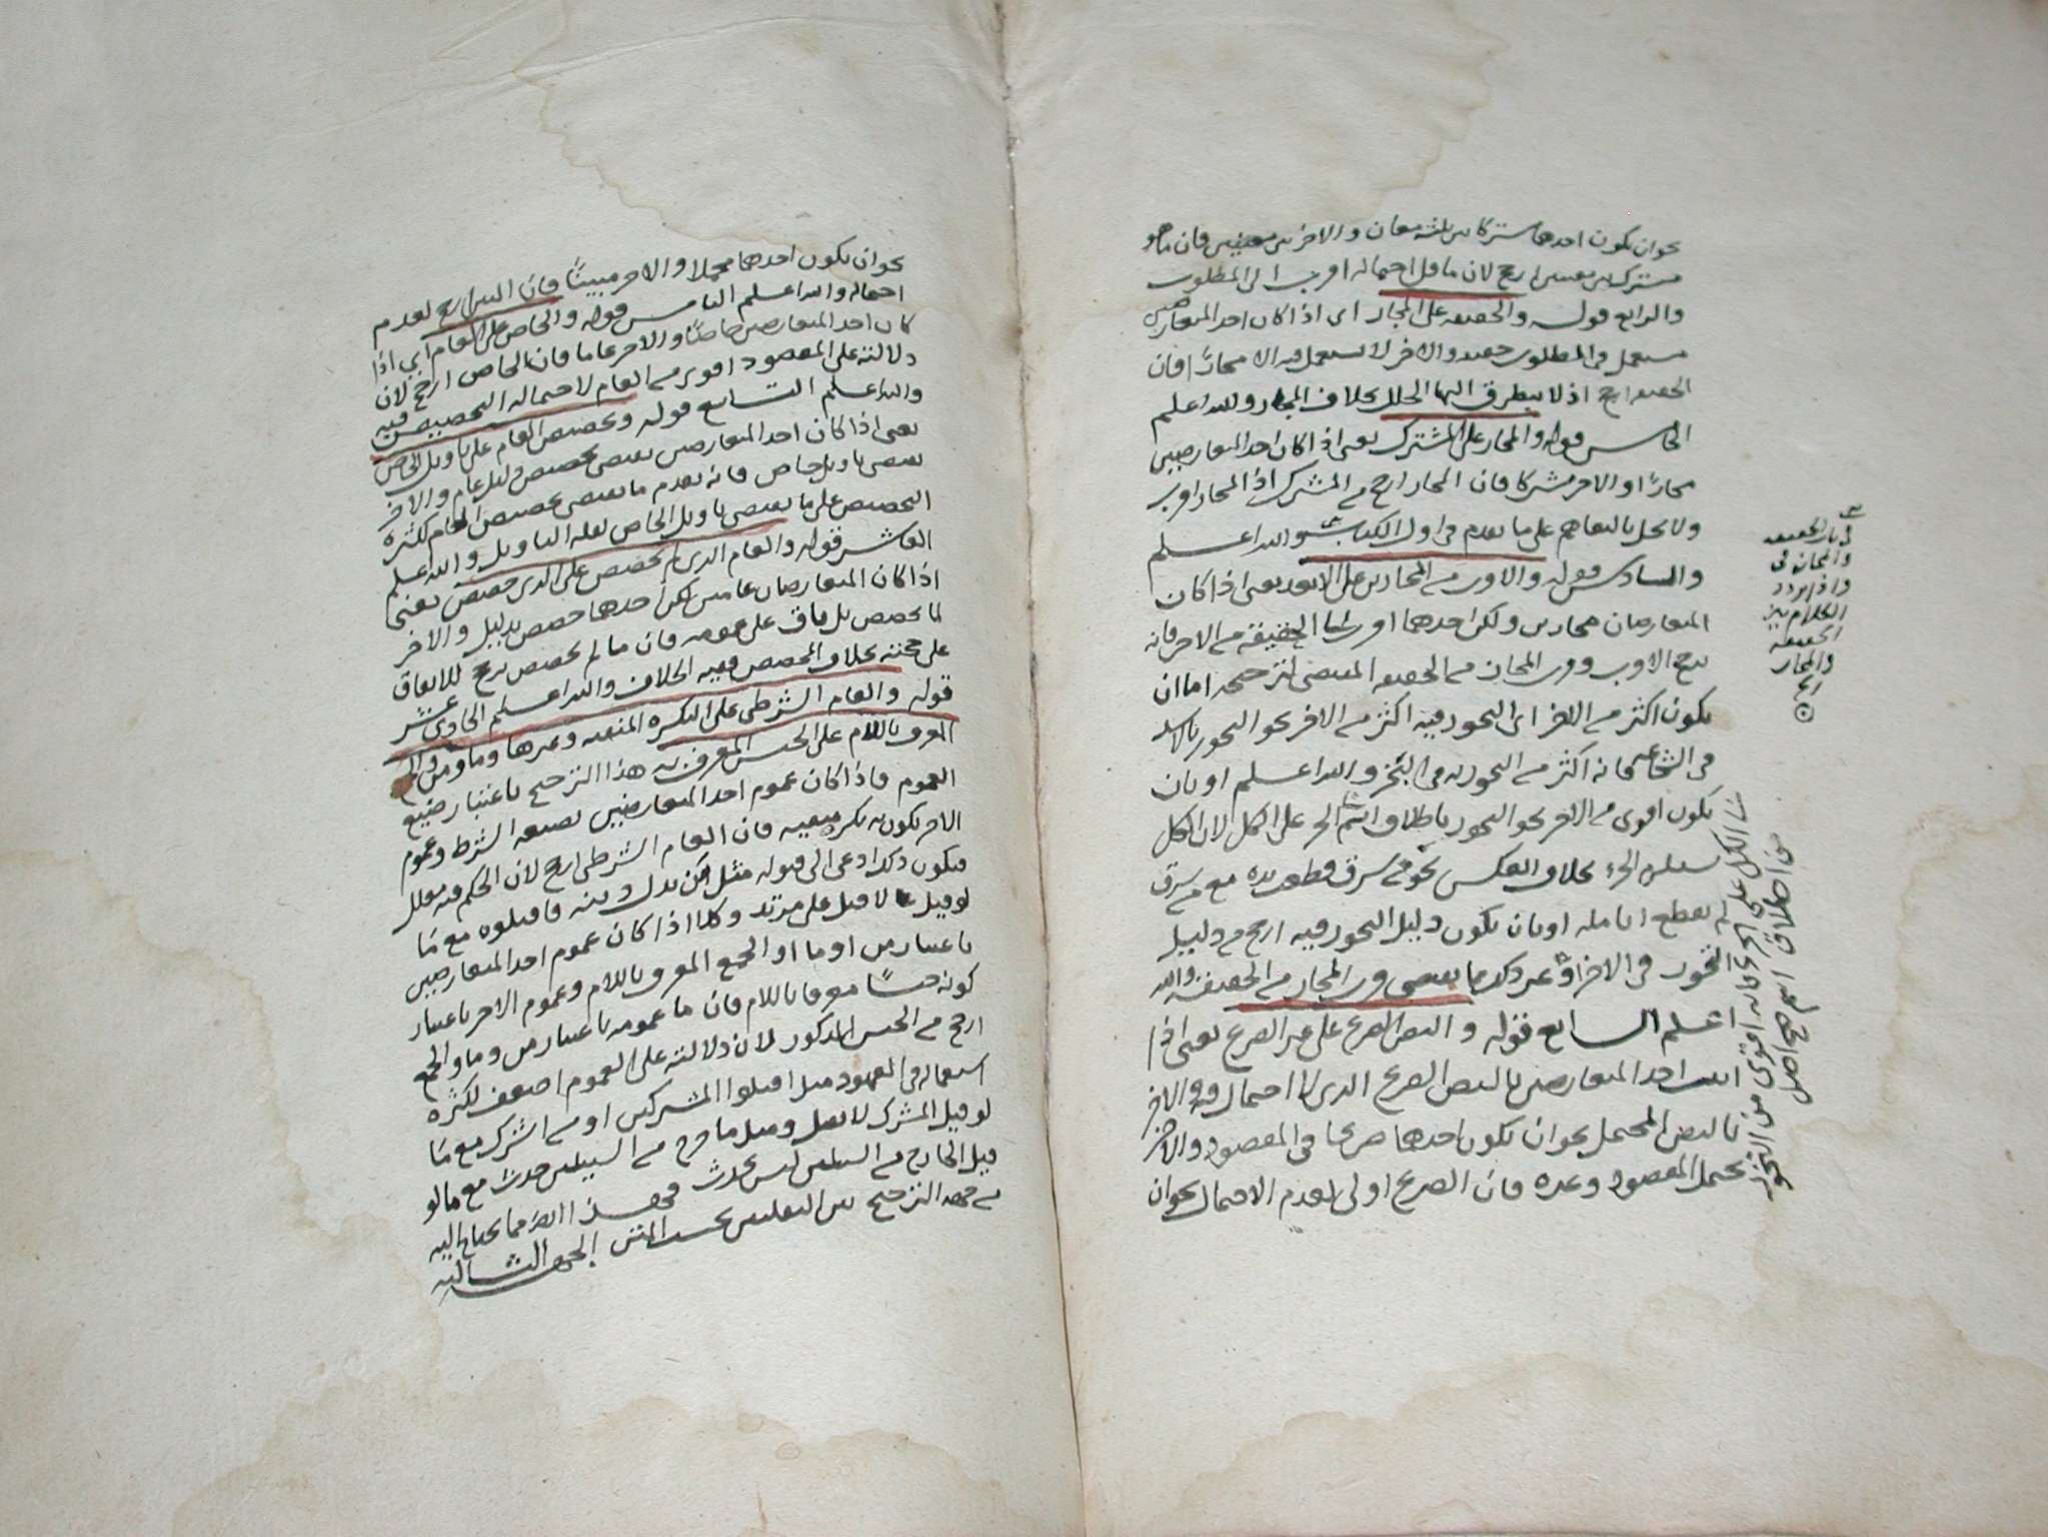 نحو ان يكون احدهما مشتركا بين ثلثة معان والاخر بين معنيين فان ما هو
مشترك بين معنيين ارجح لان ما قل احتماله اقرب الى المطلوب
والرابع قوله والحقيقه على المجاز اى اذا كان احد المتعارضين
يستعمل فى المطلوب حقيقه والاخر لا يستعمل فيه الا مجازًا فان
الحقيقه ارجح اذ لا يتطرق اليها الخلل بخلاف المجاز والله اعلم
الخامس قوله والمجاز على المشترك يعنى اذا كان احد المتعارضين
مجازًا والاخر مشتركا فان المجاز ارجح من المشترك اذ المجاز اقرب
ولا يخل بالتفاهم على ما تقدم فى اول الكتاب والله اعلم
والسادس قوله والاقرب من المجازين على الابعد يعنى اذا كان
المتعارضان مجازين ولكن احدهما اقرب الى الحقيقة من الاخر فانه
يرجح الاقرب وقرب المجاز من الحقيقه المقتضى لترجيحه اما ان
يكون اكثر من الاخر اى التجوز فيه اكثر من الاخر نحو التجوز بالاسد
فى الشجاع فانه اكثر من التجوز به فى البخر والله اعلم او بان
يكون اقوى من الاخر نحو التجوز باطلاق اسم الجزء على الكل لان الكل
يستلزم الجزء بخلاف العكس نحو من سرق قطعت يده مع من سرق
لم يقطع انامله او بان يكون دليل التجوز فيه ارجح من دليل
التجوز فى الاخر او غير ذلك مما يقتضى قرب المجاز من الحقيقه والله
اعلم السابع قوله والنص الصريح على غير الصريح يعنى اذا
اثبت احد المتعارضين بالنص الصريح الذى لا احتمال فيه والاخر
بالنص المحتمل نحو ان يكون احدهما صريحا فى المقصود والاخر
يحتمل المقصود وغيره فان الصريح اولى لعدم الاحتمال نحو ان
فى باب الحقيقه
والمجاز فى
واذا تردد
الكلام بين
الحقيقه
والمجاز
الخ
الكل على الجزء فانه اقوى من التجوز
من اطلاق اسم صح اصل
نحو ان يكون احدهما مجملا والاخر مبينًا فان المبين ارجح لعدم
احتماله والله اعلم الثامن قوله والخاص على العام اى اذا
كان احد المتعارضين خاصًا والاخر عاما فان الخاص ارجح لان
دلالته على المقصود اقوى من العام لاحتماله التخصيص فيه
والله اعلم التاسع قوله وتخصيص العام على تاويل الخاص
يعنى اذا كان احد المتعارضين يقتضى تخصيص دليل عام والاخر
يقتضى تاويل خاص فانه يقدم ما يقتضى تخصيص العام لكثرة
التخصيص على ما يقتضى تاويل الخاص لقلة التاويل والله اعلم
العاشر قوله والعام الذى لم يخصص على الذى خصص يعنى
اذا كان المتعارضان عامين لكن احدهما خصص بدليل والاخر
لما يخصص بل باق على عمومه فان ما لم يخصص يرجح للاتفاق
على حجته بخلاف المخصص ففيه الخلاف والله اعلم الحادى عشر
قوله والعام الشرطى على النكره المنفيه وغيرها وما ومن والجمع
المعرف باللام على الجنس المعرف به هذا الترجيح باعتبار صيغ
العموم فاذا كان عموم احد المتعارضين بصيغه الشرط وعموم
الاخر بكونه نكره منفيه فان العام الشرطى ارجح لان الحكم فيه معلل
فيكون ذلك ادعى الى قبوله مثل من بدل دينه فاقتلوه مع ما
لو قيل لا قتل على مرتد وكذا اذا كان عموم احد المتعارضين
باعتبار من او ما او الجمع المعرف باللام وعموم الاخر باعتبار
كونه جنسًا معرفا باللام فان ما عمومه باعتبار من وما والجمع
ارجح من الجنس المذكور لان دلالته على العموم اضعف لكثرة
استعماله فى المعهود مثل اقتلوا المشركين او من اشرك مع ما
لو قيل المشرك لا يقتل ومثل ما خرج من السبيلين حدث مع ما لو
قيل الخارج من السبيلين ليس بحدث فهذا اكثر مما يحتاج اليه
من جهه الترجيح بين النقلين بحسب المتن الجهه الثانيه